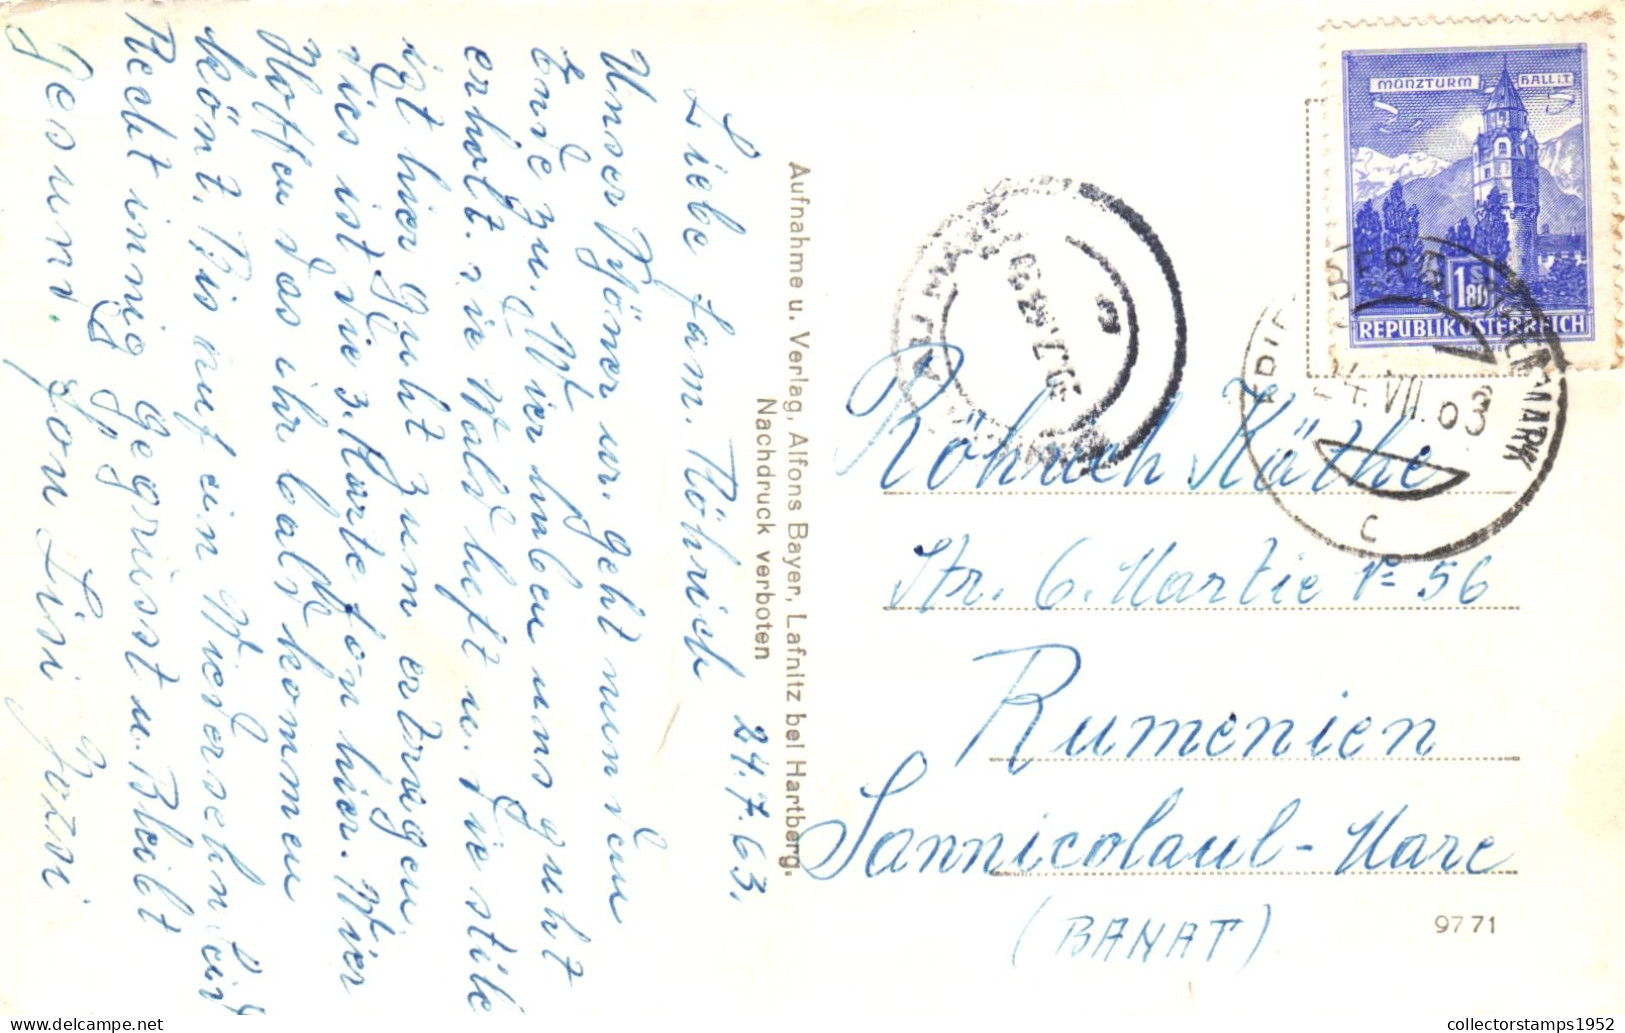 24.7.63.
Liebe Fam. Röhrich
Unser Schöner ur. geht nun dem
Ende zu. Wier haben uns guht
erholt. die Waldluft u. die stille
ist hier guht zum ertragen
dies ist die 3. Karte fon hier. Wier
Hoffen das ihr bald kommen
könt. Bis auf ein Wiedersehn seid
Recht innig gegrüsst u. Bleibt
Gesund. fon Lisi
Aufnahme u. Verlag, Alfons Bayer, Lafnitz bei Hartberg.
Nachdruck verboten
MÜNZTURM HALL i.T.
1.80 S
REPUBLIK ÖSTERREICH
24.VII.63
C
Röhrich Käthe
Str. 6. Martie No 56
Rumenien
Sannicolaul-Mare
(BANAT)
9771
collectorstamps1952